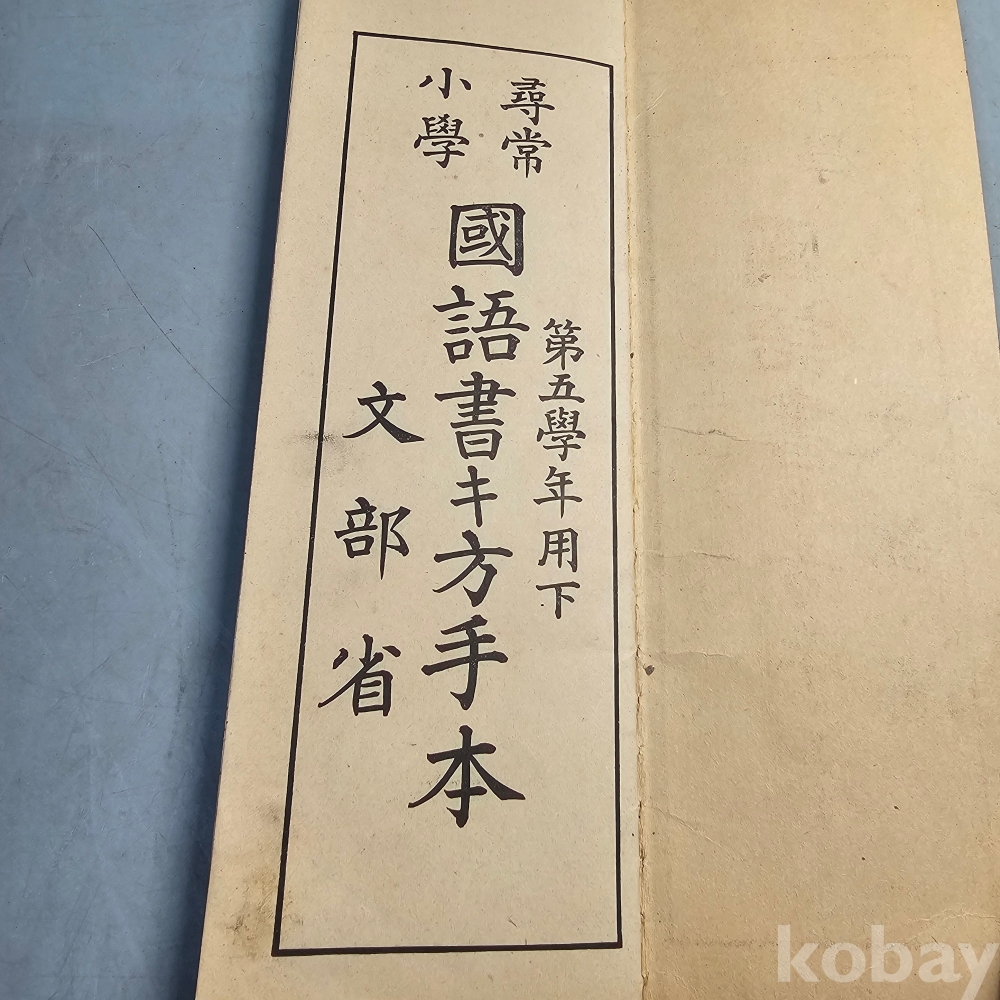 尋常
小學
國語書キ方手本
第五學年用下
文部省
kobay